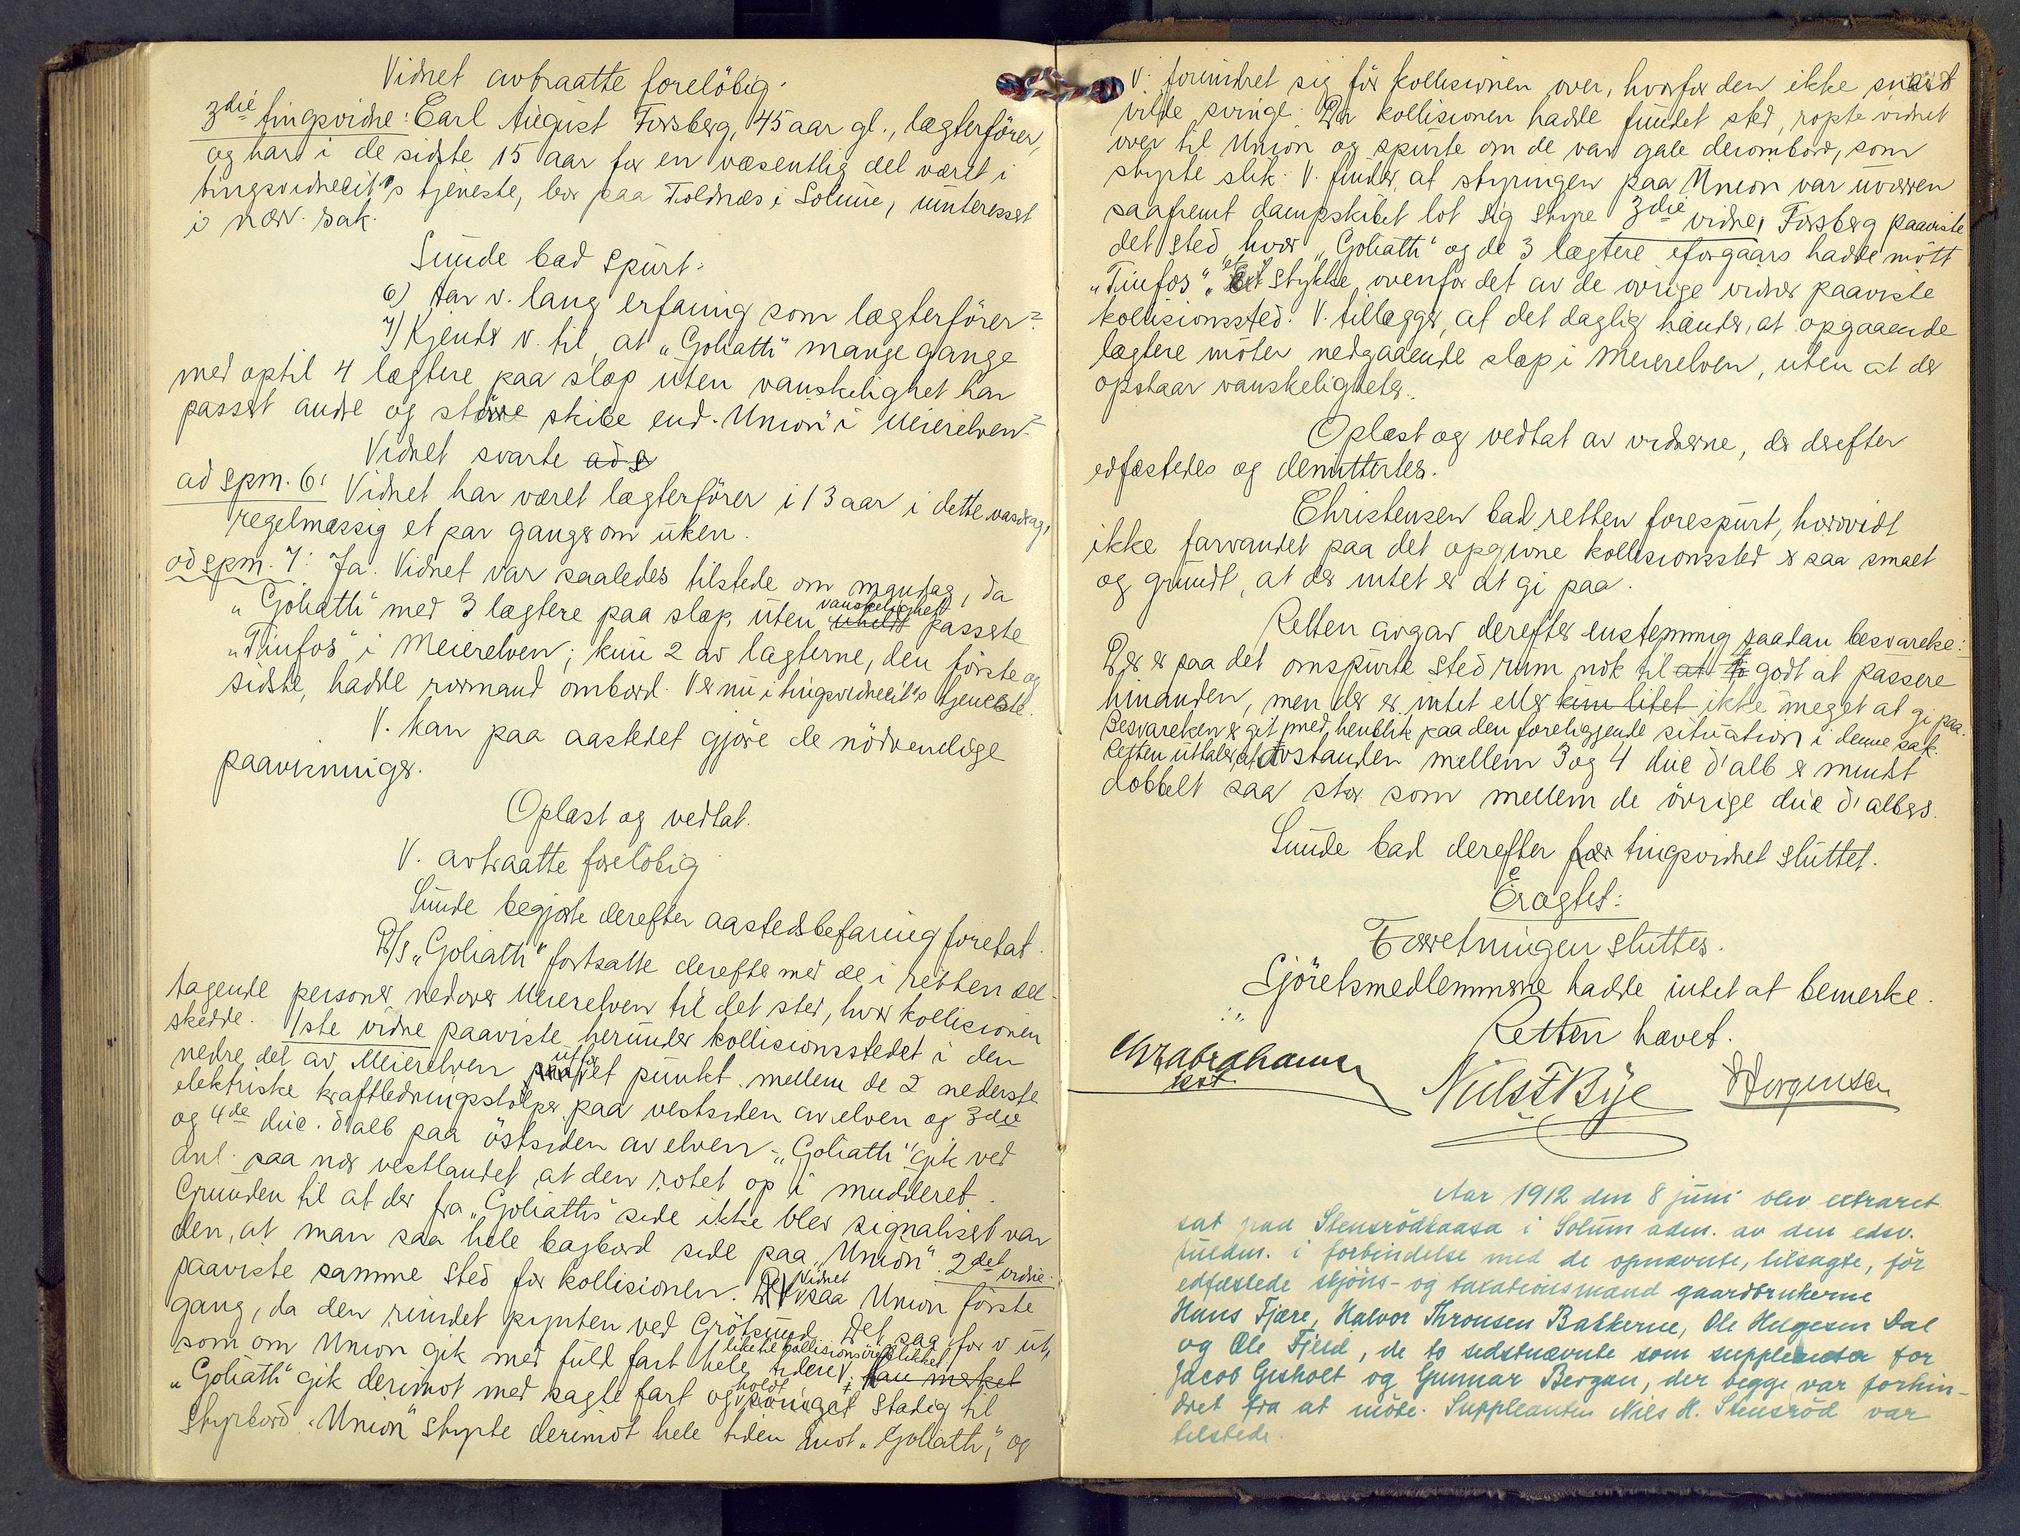 Vidnet avtraatte foreløbig.
3die tingsvidne: Carl August Forsberg, 45 aar gl., lægterfører,
og har i de sidste 15 aar for en væsentlig del været i
tingsvidnecit's tjeneste, bor paa Toldnæs i Solum, uinteresset
i nærv. sak.
Sunde bad spurt:
6) Har v. lang erfaring som lægterfører?
7) Kjender v. til, at „Goliath" mange gange
med optil 4 lægtere paa slæp uten vanskelighet har
passert andre og større skibe end „Union" i Meierelven?
Vidnet svarte ad s
ad spm. 6: Vidnet har været lægterfører i 13 aar i dette vasdrag,
regelmæssig et par ganger om uken.
ad spm. 7: Ja. Vidnet var saaledes tilstede om mandag, da
„Goliath" med 3 lægtere paa slæp, uten uheldt vanskelighet passerte
„Tinfos" i Meierelven; kun 2 av lægterne, den første og
sidste, hadde rormand ombord. Er nu i tingsvidnecit's tjeneste.
V. kan paa aastedet gjøre de nødvendige
paavisninger.
Oplæst og vedtat.
V. avtraatte foreløbig
Sunde begjærte derefter aastedsbefaring foretat.
D/S „Goliath" fortsatte derefter med de i retten del-
tagende personer nedover Meierelven til det sted, hvor kollisionen
skedde. 1ste vidne paaviste herunder kollisionsstedet i den
nedre del av Meierelven paa ut for et punkt mellem de 2 nederste
elektriske kraftledningsstolper paa vestsiden av elven og 3die
og 4de duc. d'alb paa østsiden av elven. „Goliath" gik ved
anl. saa nær vestlandet at den rotet op i mudderet.
Grunden til at der fra „Goliath's" side ikke blev signalisert var
den, at man saa hele bagbord side paa „Union". 2det vidne
paaviste samme sted for kollisionen. Vidnet saa Union første
gang, da den rundet pynten ved Grøtsund. Det saa for v. ut,
som om Union gik med fuld fart hele tiden like til kollisionsøieblikket. kan mærket
„Goliath" gik derimot med sagte fart og holdt svinget stadig til
styrbord. „Union" styrte derimot hele tiden mot „Goliath", og
V. forundret sig før kollisionen over, hvorfor den ikke snart
vilde svinge. Da kollisionen hadde fundet sted, ropte vidnet
over til Union og spurte om de var gale derombord, som
styrte slik. V. finder, at styringen paa Union var uvorren
saafremt dampskibet lot sig styre. 3die vidne, Forsberg paaviste
det sted, hvor „Goliath" og de 3 lægtere iforgaars hadde møtt
„Tinfos", et stykke ovenfor det av de øvrige vidner paaviste
kollisionssted. V. tillægger, at det daglig hænder, at opgaaende
lægtere møter nedgaaende slæp i Meierelven, uten at der
opstaar vanskeligheter.
Oplæst og vedtat av vidnerne, der derefter
edfæstedes og demitterter.
Christensen bad retten forespurt, hvorvidt
ikke farvandet paa det opgivne kollisionssted er saa smalt
og grundt, at der intet er at gi paa.
Retten avgav derefter enstemmig saadan besvarelse:
Der er paa det omspurte sted rum nok til at godt at passere
hinanden, men der er intet eller kun litet ikke meget at gi paa.
Besvarelsen er git med henblik paa den foreliggende situation i denne sak.
Retten uttaler, at avstanden mellem 3 og 4 duc d'alb er mindst
dobbelt saa stor som mellem de øvrige duc d'albes.
Sunde bad derefter tingsvidnet sluttet.
Eragtet:
Forretningen sluttes.
Sjøretsmedlemmerne hadde intet at bemerke.
Retten hævet.
Chr Abrahamsen
kst.
Nils F Bye
Jørgensen
Aar 1912 den 8 juni blev extraret
sat paa Stensrødkaasa i Solum adm. av den edsv.
fuldm. i forbindelse med de opnævnte, tilsagte, før
edfæstede skjøns- og taxationsmænd gaardbrukerne
Hans Fjære, Halvor Thronsen Bakkerne, Ole Helgesen Dal
og Ole Fjeld, de to sidstnævnte som suppleanter for
Jacob Gisholt og Gunnar Bergan, der begge var forhin-
dret fra at møte. Suppleanten Nils H. Stensrød var
tilstede.